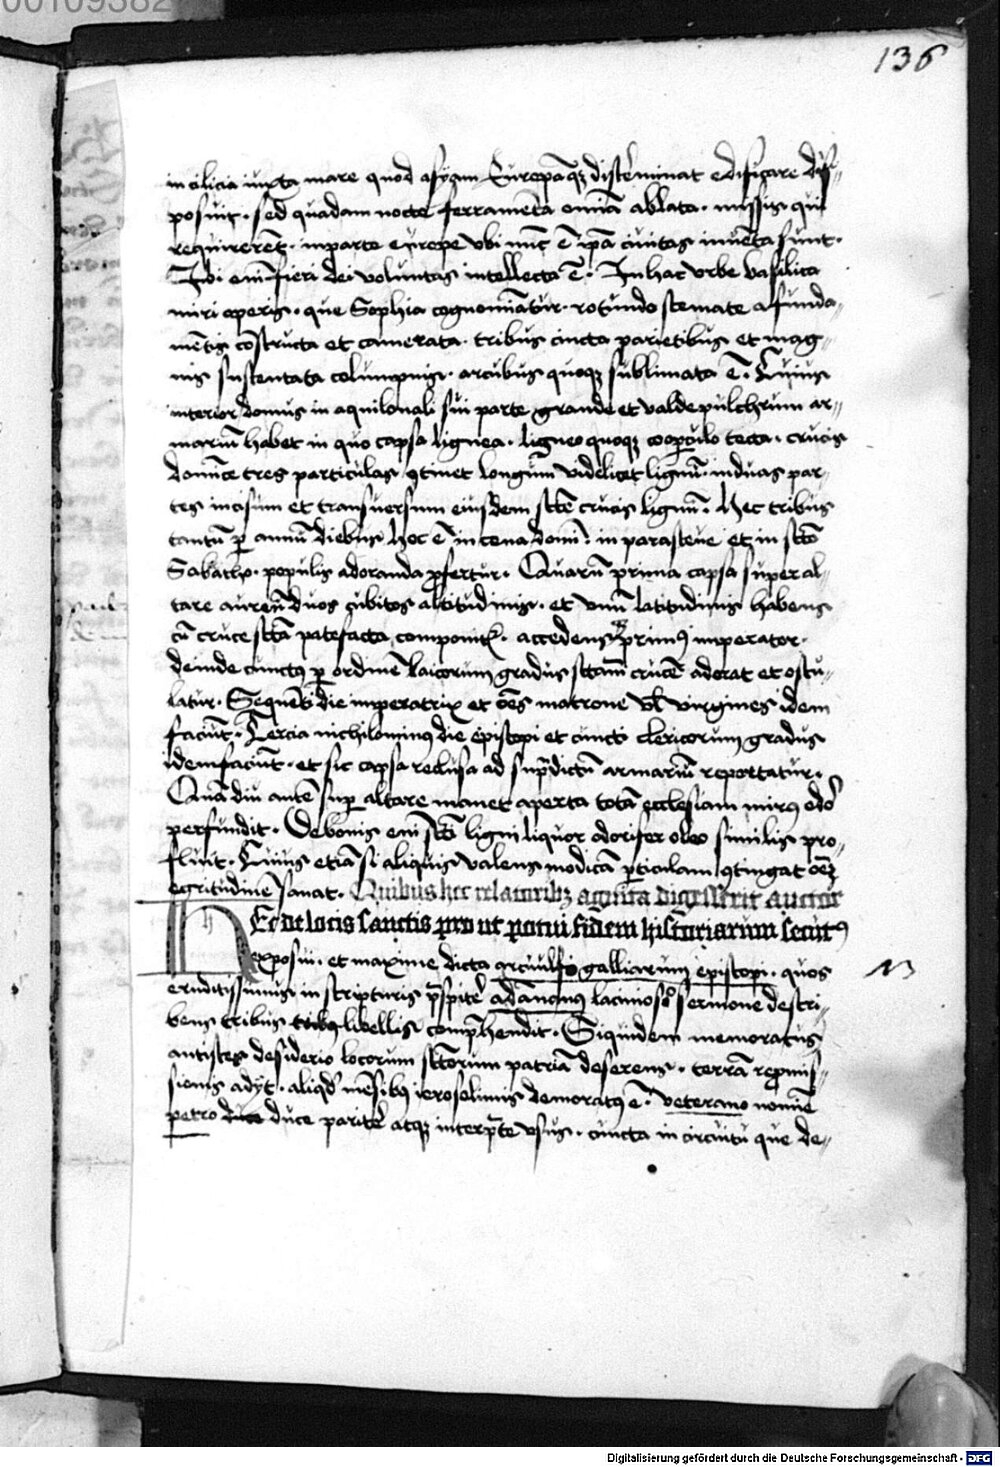 00109382
136
in cilicia iuxta mare quod asyam Europāq; distĕminat edificare dis„
posuit · sed quadam nocte ferramēta omīa ablata · missis qui
requirerēt · in parte europe vbi nūc ē ipā ciuitas inuēta sunt ·
Ibi enī fieri dei voluntas intellecta ē · In hac vrbe basilica
miri operis · que Sophia cognomīatur · rotundo stemate a funda„
mētis cōstructa et camerata · tribus cincta parietibus et mag„
nis sustentata columpnis · arcubus quoq; sublimata ē · Cuius
interior domus in aquilonali sui parte grande et valde pulchrum ar„
mariū habet in quo capsa lignea · ligneo quoq; coopculo tecta · crucis
domīce tres particulas 9tinet longum videlicet lignū · in duas par„
tes incisum et transuersum eiusdem sctē crucis lignū · Hec tribus
tantū p annū diebus hoc ē in cena domī · in parasceue et in sctō
Sabatho · populis adoranda pfertur · Quarū prima capsa super al„
tare aureū duos cubitos altitudinis · et vnū latitudinis habens
cū cruce sctā patefacta componit̃ · accedensq; primus imperator ·
deinde cunctus p ordinē laicorum gradus sctam crucē adorat et oscu„
latur · Sequēti die imperatrix et oēs matrone vl virgines idem
faciūt · Tercia nichilomin9 die episcopi et cuncti clericorum gradus
idem faciūt · et sic capsa reclusa ad supdictū armariū reportatur ·
Quā diu autē sup altare manet aperta totā ecclesiam mir9 odo
perfundit · De bonis enī scti ligni liquor odorifer oleo similis pro„
fluit · Cuius etiā si aliquis valens modicā pticulam 9tingat oēm
egritudinē sanat · Quibus hec relatorib; agnita digesserit auctor
HEc de locis sanctis prout potui fidem historiarum secut9
exposui · et maxime dicta arcuulfo galliarum episcopi · quos
eruditissimus in scripturis pspitĕ adamann9 lacinioso sermone descri„
bens tribus libellis compĕhendit · Siquidem memoratus
antistes desiderio locorum sctorum patriā deserens · terrā repmis„
sionis adyt · aliqd mēsib9 ierosolimis demorat9 ē · veterano nomīe
petro duce duce paritĕ atq; interpte vsus · cuncta in circuitu que de„
Digitalisierung gefördert durch die Deutsche Forschungsgemeinschaft - DFG